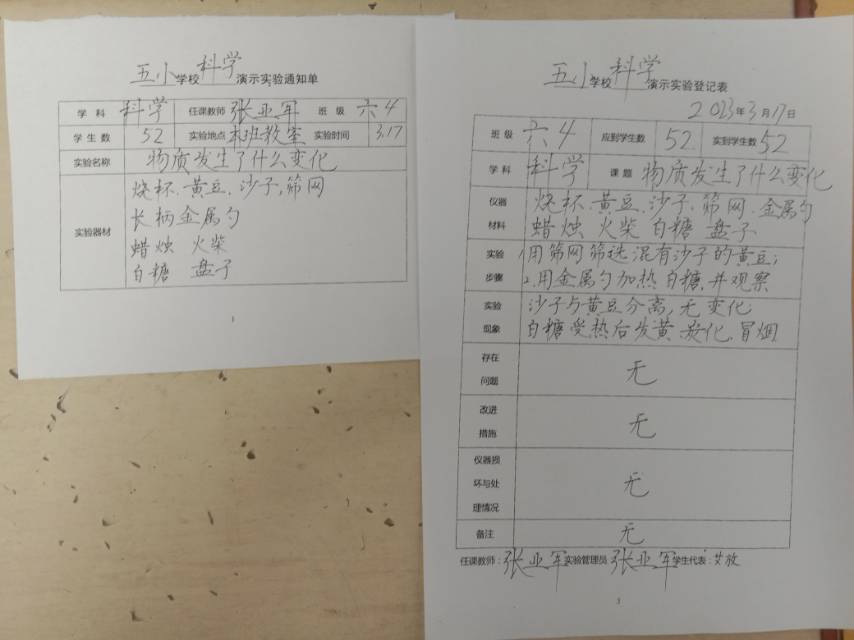 五小学校科学演示实验通知单
学科 科学 任课教师 张亚军 班级 六4
学生数 52 实验地点 本班教室 实验时间 3.17
实验名称 物质发生了什么变化
实验器材
烧杯、黄豆、沙子、筛网
长柄金属勺
蜡烛 火柴
白糖 盘子
1
五小学校科学演示实验登记表
2023年3月17日
班级 六4 应到学生数 52 实到学生数 52
学科 科学 课题 物质发生了什么变化
仪器 烧杯、黄豆、沙子、筛网、金属勺
材料 蜡烛 火柴 白糖 盘子
实验 1.用筛网筛选混有沙子的黄豆;
步骤 2.用金属勺加热白糖,并观察
实验 沙子与黄豆分离,无变化
现象 白糖受热后发黄、炭化、冒烟
存在
问题 无
改进
措施 无
仪器损
坏与处 无
理情况
备注 无
任课教师:张亚军 实验管理员 张亚军 学生代表:艾放